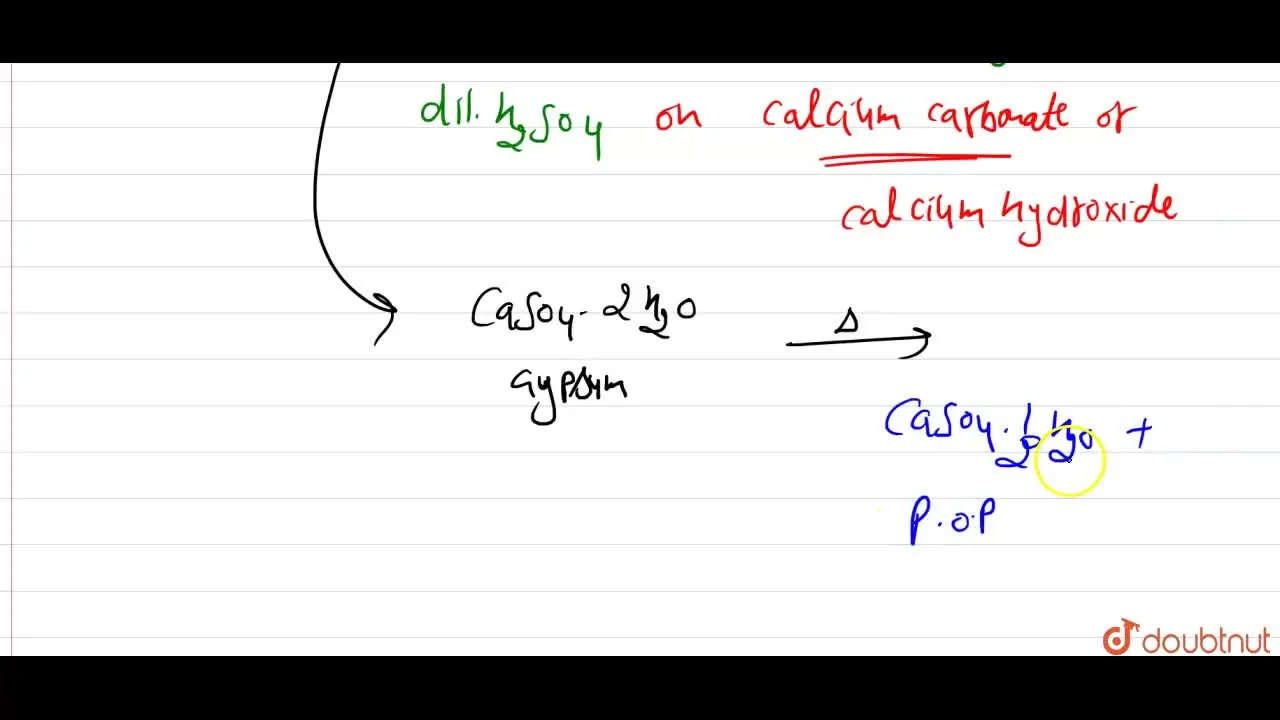 dil. H2SO4 on calcium carbonate or
calcium hydroxide
CaSO4. 2H2O
Δ
Gypsum
CaSO4. 1/2 H2O +
P.O.P
doubtnut